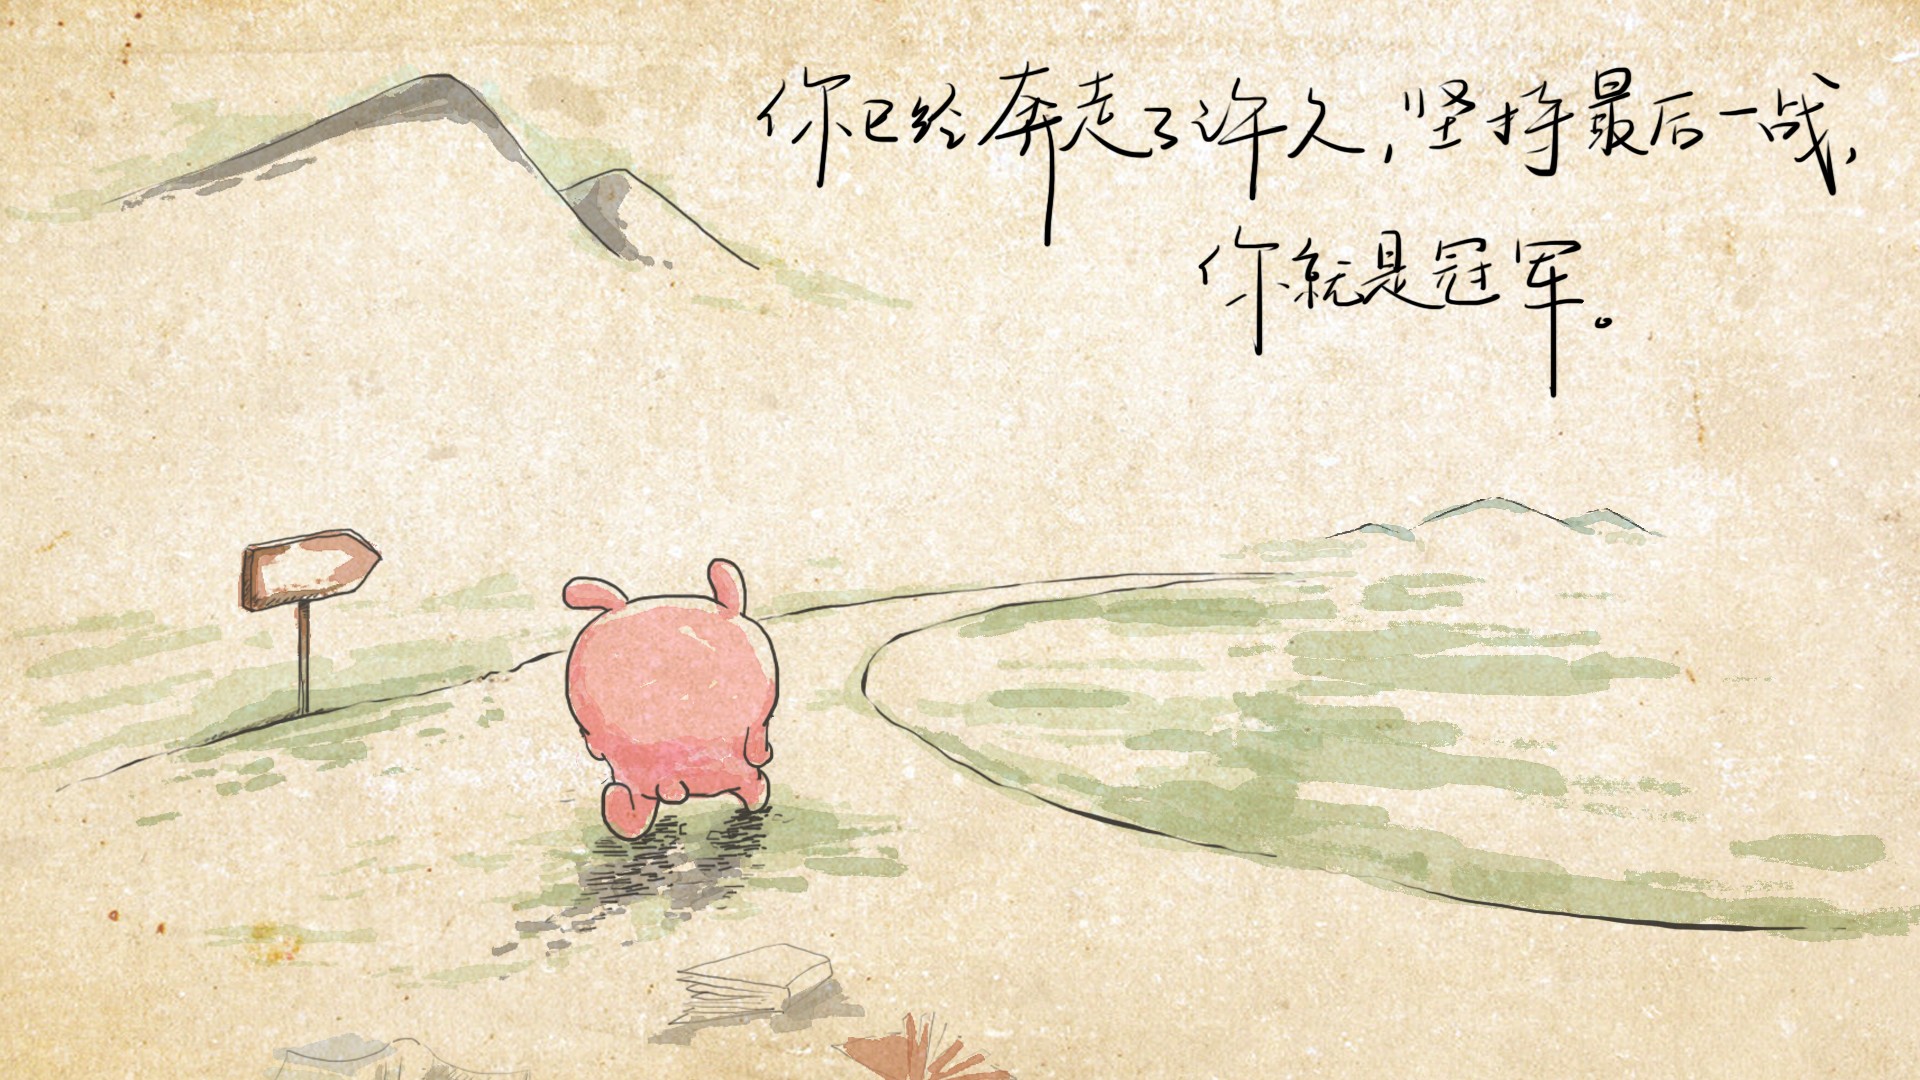 你已经奔走了许久,坚持最后一战,
你就是冠军。